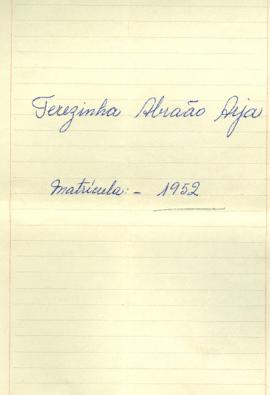 Terezinha Abraão Arja
Matrícula: - 1952